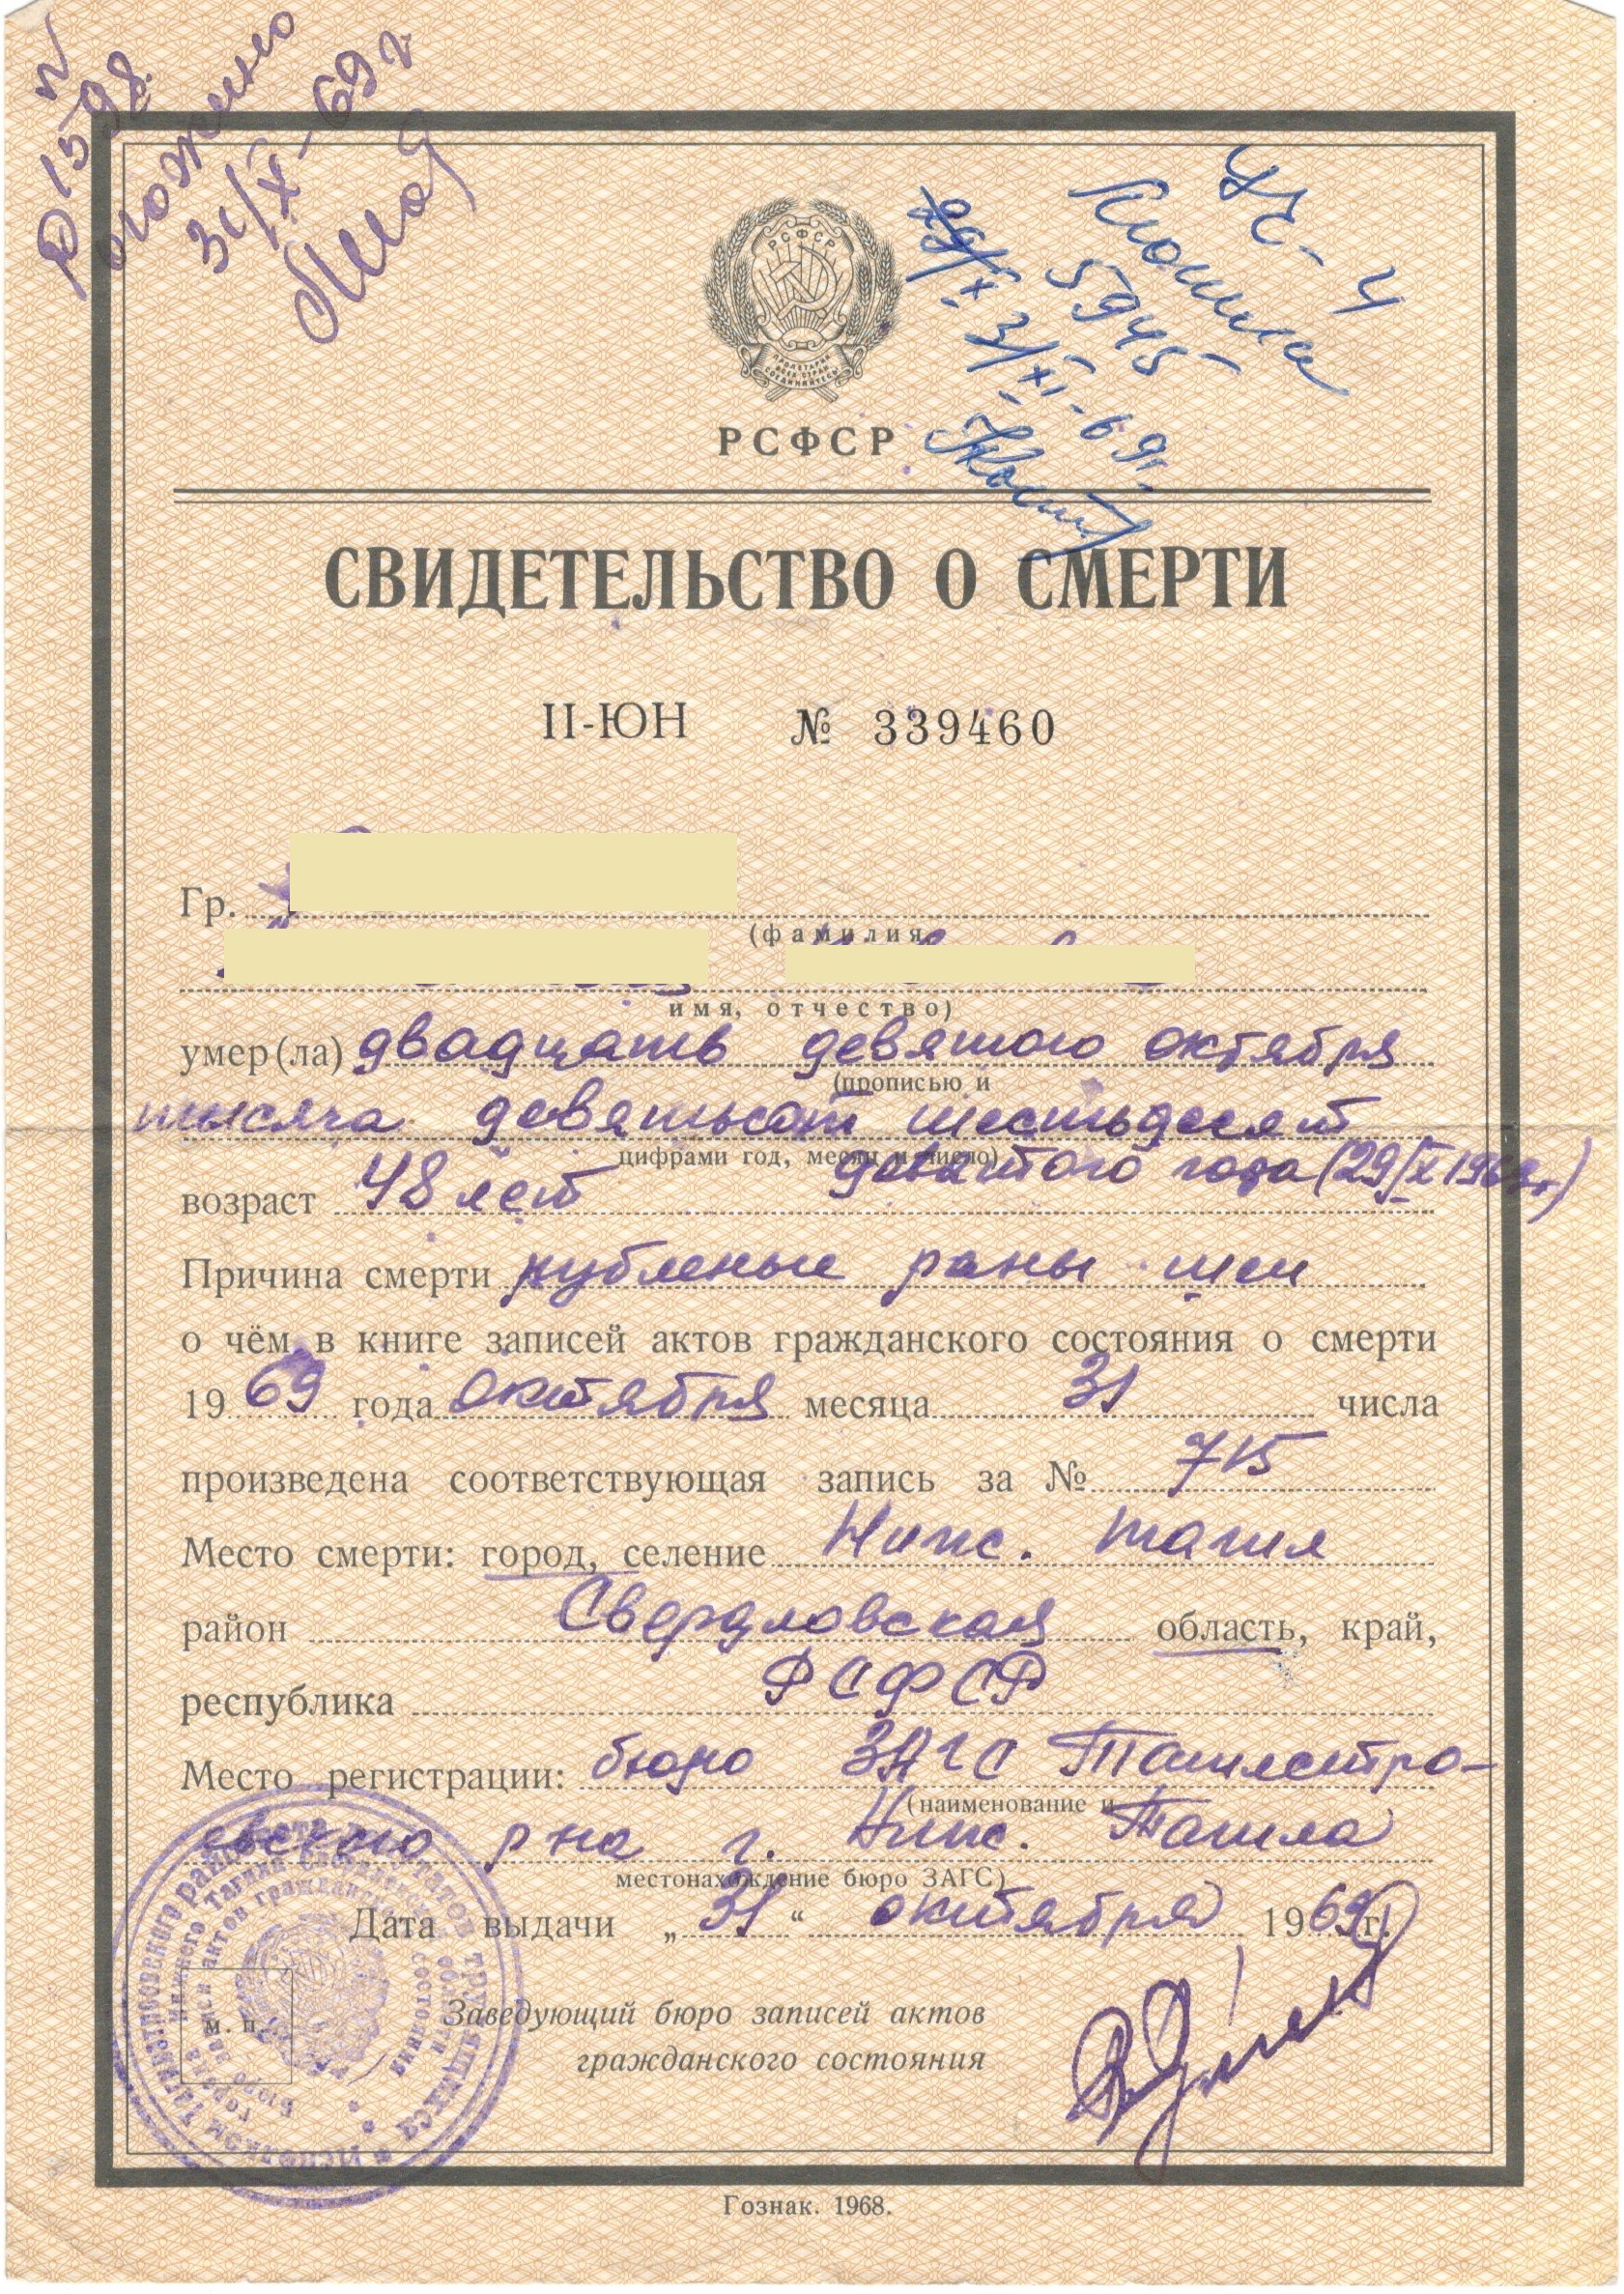 №
1598
31/X-69г
УГ-4
5945
29/X.
3/XI-69г.
РСФСР
ПРОЛЕТАРИИ
ВСЕХ СТРАН
СОЕДИНЯЙТЕСЬ!
РСФСР
СВИДЕТЕЛЬСТВО О СМЕРТИ
II-ЮН № 339460
Гр.
(фамилия,
имя, отчество)
умер(ла) двадцать девятого октября
(прописью и
тысяча девятьсот шестьдесят
цифрами год, месяц и число)
девятого года (29/X 1969г.)
возраст 48 лет
Причина смерти рубленые раны шеи
о чём в книге записей актов гражданского состояния о смерти
1969 года октября месяца 31 числа
произведена соответствующая запись за № 715
Место смерти: город, селение Ниж. Тагил
район Свердловская область, край,
республика РСФСР
Место регистрации: бюро ЗАГС Тагилстро-
(наименование и
евского р-на г. Ниж. Тагила
местонахождение бюро ЗАГС)
Дата выдачи „31“ октября 1969г.
М. П.
Заведующий бюро записей актов
гражданского состояния
Гознак. 1968.